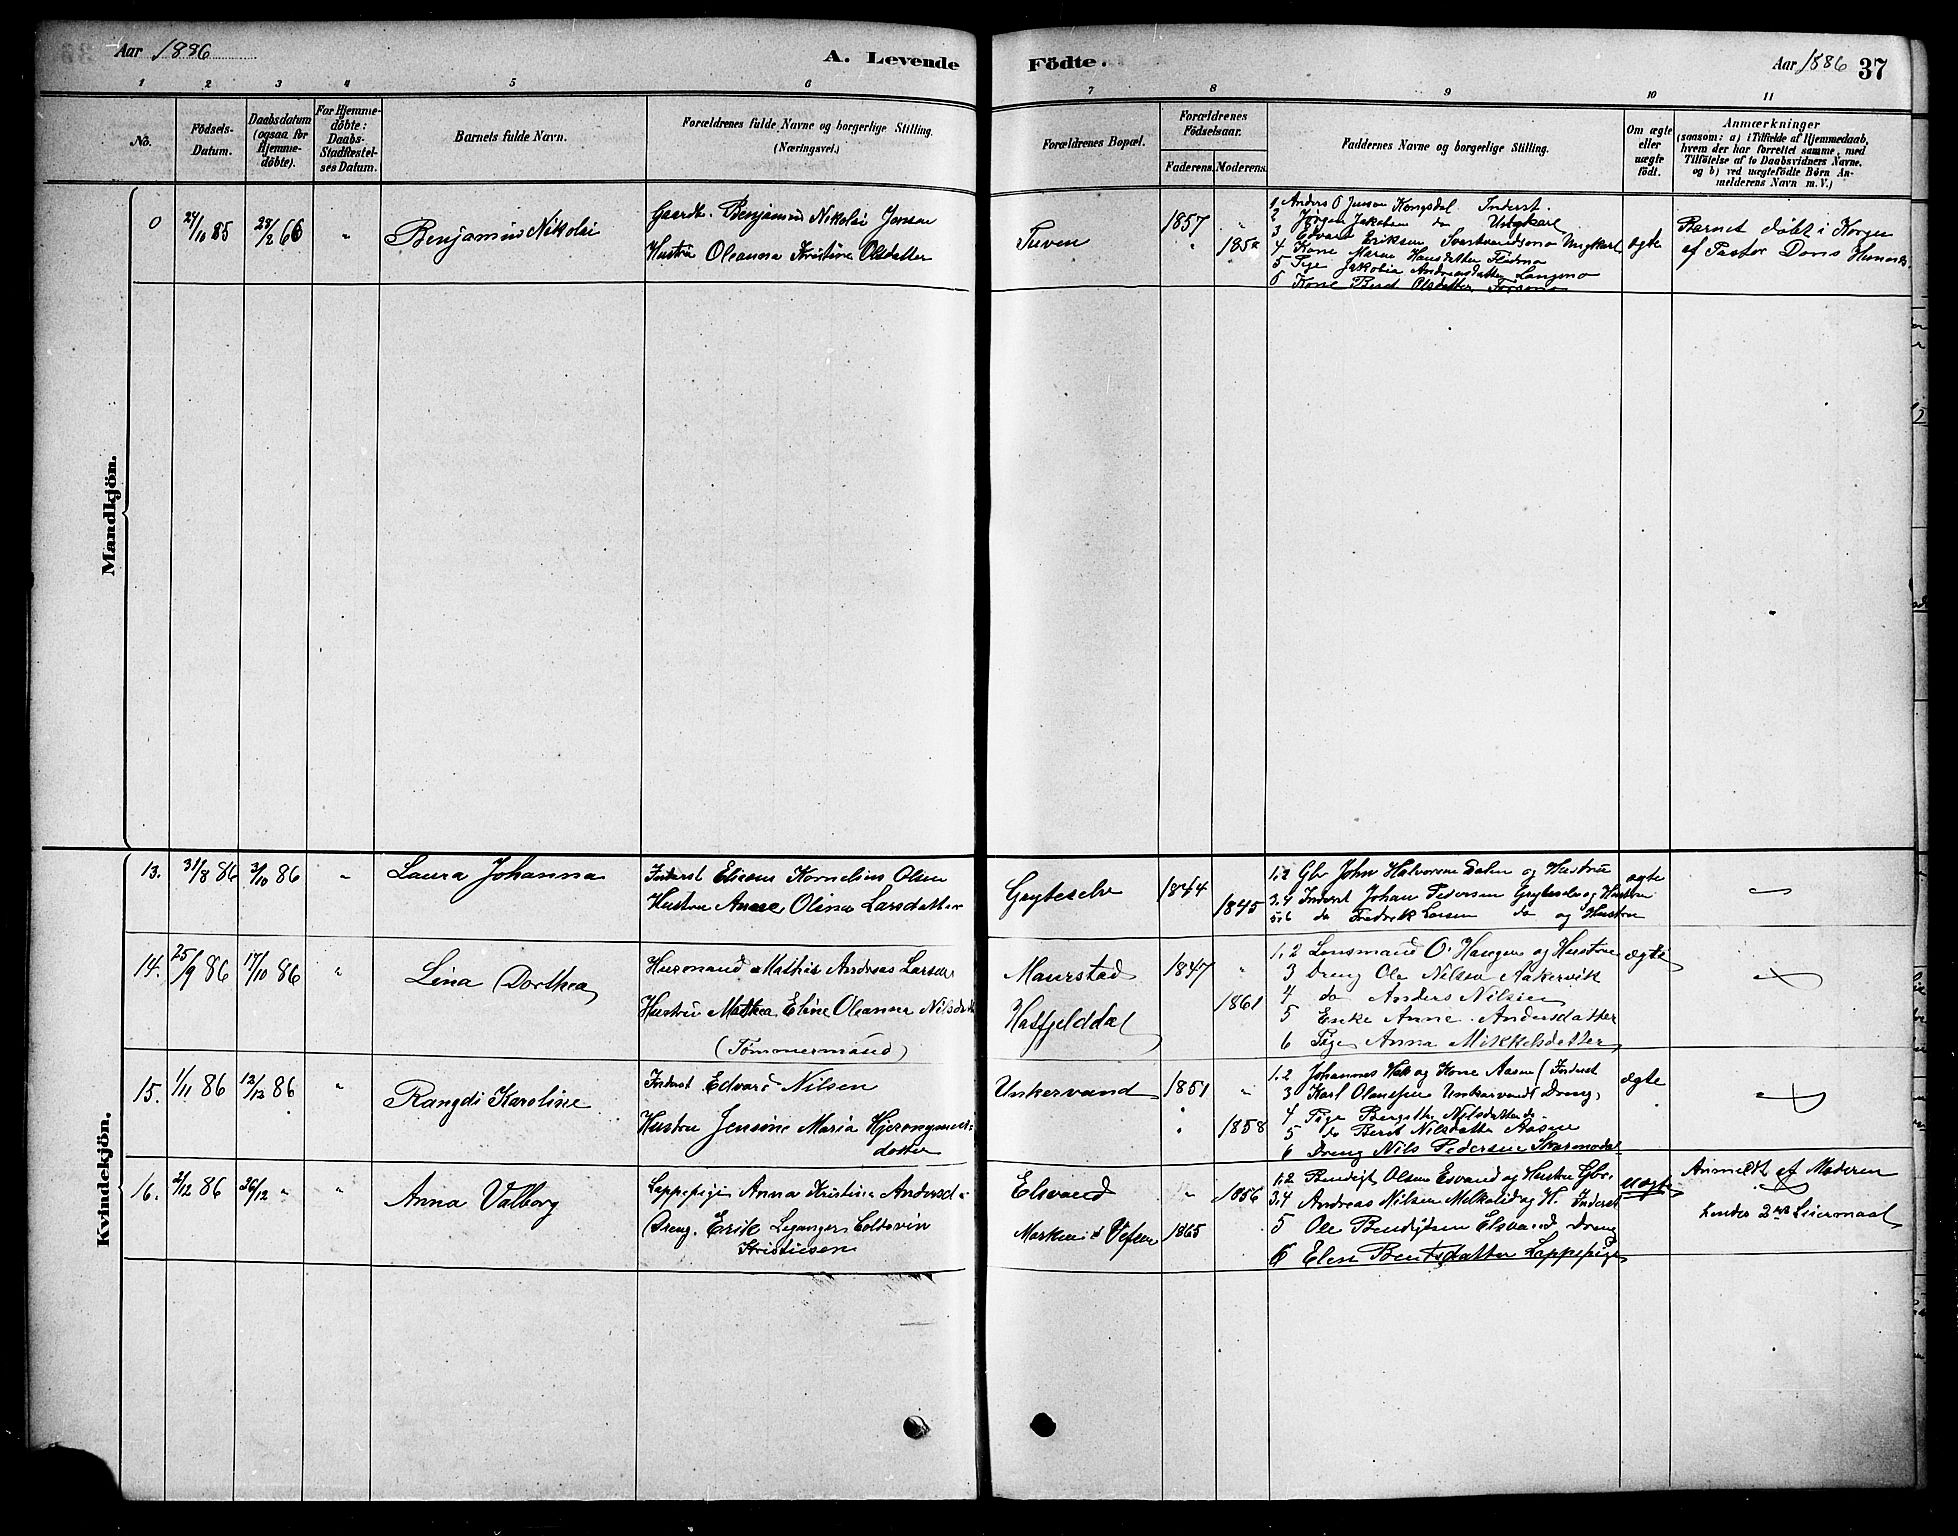 Aar 1886
A. Levende Födte.
Aar 1886 37
1 2 3 4 5 6 7 8 9 10 11
No.
Födsels-
Datum.
Daabsdatum
(ogsaa for
Hjemme-
döbte).
For Hjemme-
döbte:
Daabs-
Stadfæstel-
ses Datum.
Barnets fulde Navn.
Forældrenes fulde Navne og borgerlige Stilling.
(Næringsvei.)
Forældrenes Bopæl.
Forældrenes
Födselsaar.
Faderens. Moderens.
Faddernes Navne og borgerlige Stilling.
Om ægte
eller
uægte
födt.
Anmærkninger
(saasom: a) i Tilfælde af Hjemmedaab,
hvem der har forrettet samme, med
Tilföielse af to Daabsvidners Navne,
og b) ved uægtefödte Börn An-
melderens Navn m. V.)
Mandkjön.
0 27/10 85 28/2 "
Benjamin Nikolai
Gaardb. Benjamin Nikolai Jonsen
Hustru Oleanna Kristine Olsdatter
Tuven
1857 "
"
1. Anders O Jensen Kongsdal Inderst.
2 Jørgen Jakobsen do Ungkarl
3 Edvard Eriksen Ungkarl
4 Kone Maren Hansdatter
5 Pige Jakobia Andreasdatter Langmo
6 Kone Berit Olsdatter
ægte
Barnet döbt i Korgen
af Pastor
Kvindekjön.
13. 31/8 86 3/10 86 "
Laura Johanna
Inderst Kornelius Olsen
Hustru Anne Olina Larsdatter
Gryteselv
1844
1845
1.2 Gbr John Halvorsen Dalen og Hustru
3.4 Inderst Johan Pedersen Gryteselv og Hustru
5.6 do Fredrik Larsen do og Hustru
ægte
14. 25/9 86 17/10 86 "
Lina Dorthea
Husmand Mathis Andreas Larsen
Hustru Mathea Eline Oleanna
(Tømmermand)
Maurstad
Hatfjelddal
1847 "
1861
1.2 Lensmand O. Haugen og Hustru
3 Dreng Ole Nilsen
4 do Anders Nilsen
5 Enke Anne Andersdatter
6 Pige Anna Mikkelsdatter
ægte
15. 1/11 86 12/12 86 "
Rangdi Karoline
Inderst Edvard Nilsen
Hustru Jensine Maria
datter
Unkervand
1851 "
" 1858
1.2 Johannes og Kone Aasen (Inderst
3 Karl Olausen Unkervand Dreng
4 Pige Nilsdatter do
5 do Berit Nilsdatter Aasen
6 Dreng Nils Pedersen Skarmodal
ægte
16. 2/12 86 26/12 " "
Anna Valborg
Lappepige Anna Kristine Andersd.
Dreng. Erik
Kristiesen
Elsvand
Vefsen
" 1856
1865
1.2 Bendigt Olsen Elsvand og Hustru Gbr.
3.4 Andreas Nilsen og H. Inderst
5 Ole Elsvand Dreng
6 Elen Lappepige
uægte
Anmeldt af Moderen
hendes 2det Leiermaal